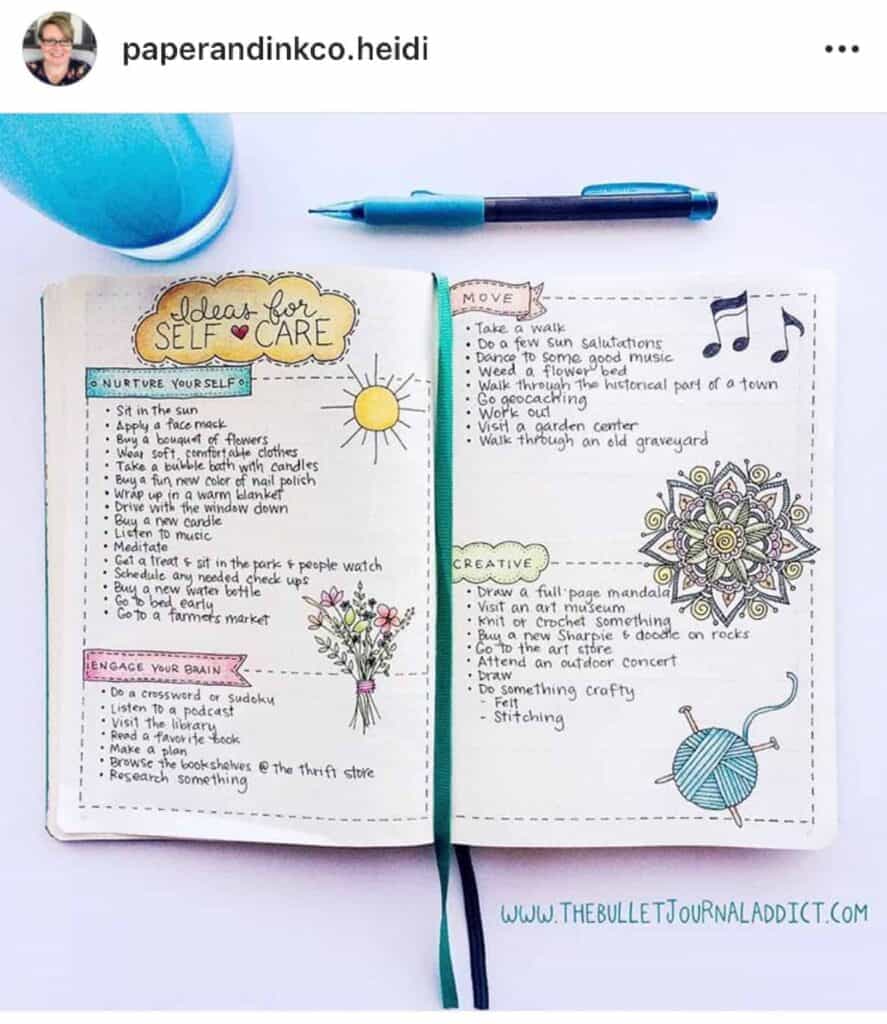 paperandinkco.heidi
Ideas for
SELF CARE
NURTURE YOURSELF
• Sit in the sun
• Apply a face mack
• Buy a bouquet of flowers
• Wear soft, comfortable clothes
• Take a bubble bath with candles
• Buy a fun new color of nail polish
• Wrap up in a warm blanket
• Drive with the window down
• Buy a new candle
• Listen to music
• Meditate
• Get a treat & sit in the park & people watch
• Schedule any needed check ups
• Buy a new water bottle
• Go to bed early
Go to a farmers market
ENGAGE YOUR BRAIN
• Do a crossword or sudoku
• Listen to a podcast
• Visit the library
• Read a favorite book
• Make a plan
• Browse the bookshelves @ the thrift store
• Research something
MOVE
• Take a walk
• Do a few sun salutations
• Dance to some good music
• Weed a flower bed
• Walk through the historical part of a town
• Go geocaching
• Work out
• Visit a garden center
• Walk through an old graveyard
CREATIVE
• Draw a full page mandala
• Visit an art museum
• Knit or Crochet something
• Buy a new Sharpie & doodle on rocks
• Go to the art store
• Attend an outdoor concert
• Draw
• Do something crafty
- Felt
- Stitching
WWW.THEBULLETJOURNALADDICT.COM